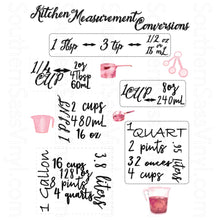 Kitchen Measurement Conversions
1 Tbsp ↔ 3 tip ↔ 1/2 oz or 15 mL
1/4 CUP
2oz
4Tbsp
60mL
1 CUP
8oz
240mL
1 PINT
2 cups
480mL
16 oz
1 QUART
2 pints
32 ounces
4 cups
.95 liters
1 Gallon
16 cups
128 oz
8 pints
4 quarts
3.8 liters